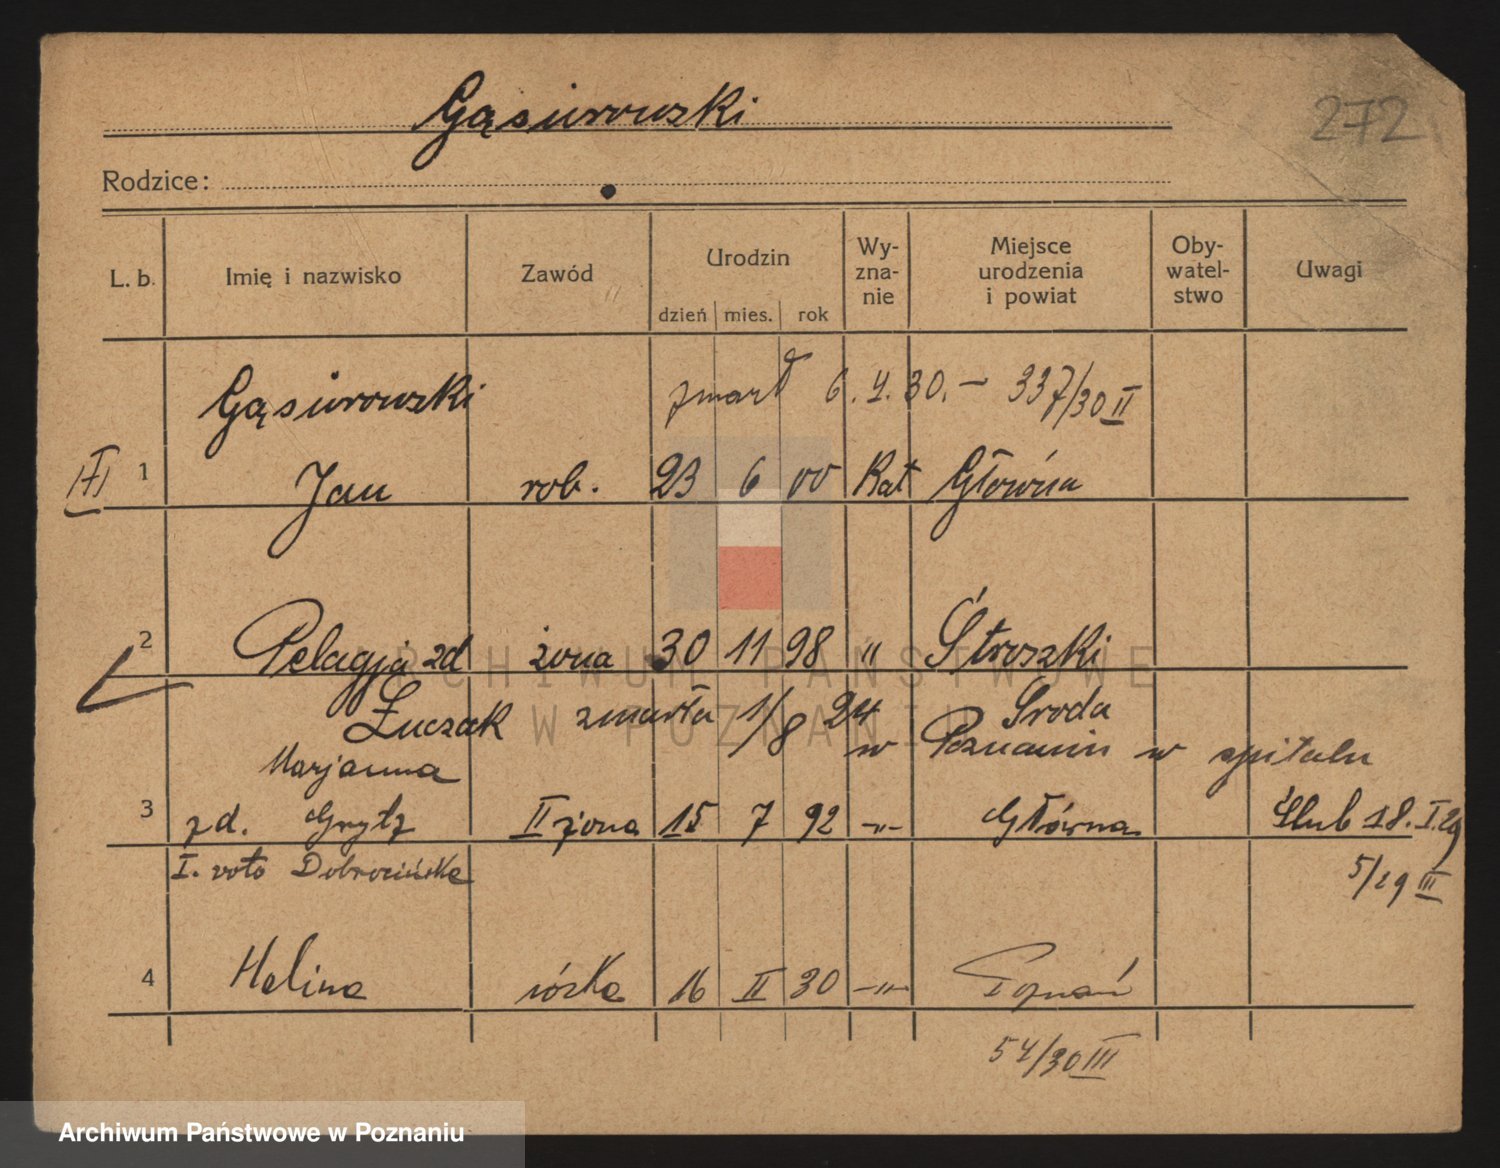 Gąsiorowski
272
Rodzice:
L. b. Imię i nazwisko Zawód Urodzin dzień mies. rok Wy-zna-nie Miejsce urodzenia i powiat Oby-watel-stwo Uwagi
Gąsiorowski zmarł 6.4.30. – 337/30 II
III 1 Jan rob. 23 6 00 Kat Główna
2 Pelagja zd żona 30 11 98 " Stroszki
Łuczak zmarła 1/8 24 Środa
w Poznaniu w szpitalu
Marjanna
3 zd. Grytz II żona 15 7 92 –"– Główna Ślub 18. I. 29
I. voto Dobrocińska 5/29 III
4 Halina córka 16 II 30 –"– Poznań
54/30 III
ARCHIWUM PAŃSTWOWE
W POZNANIU
Archiwum Państwowe w Poznaniu